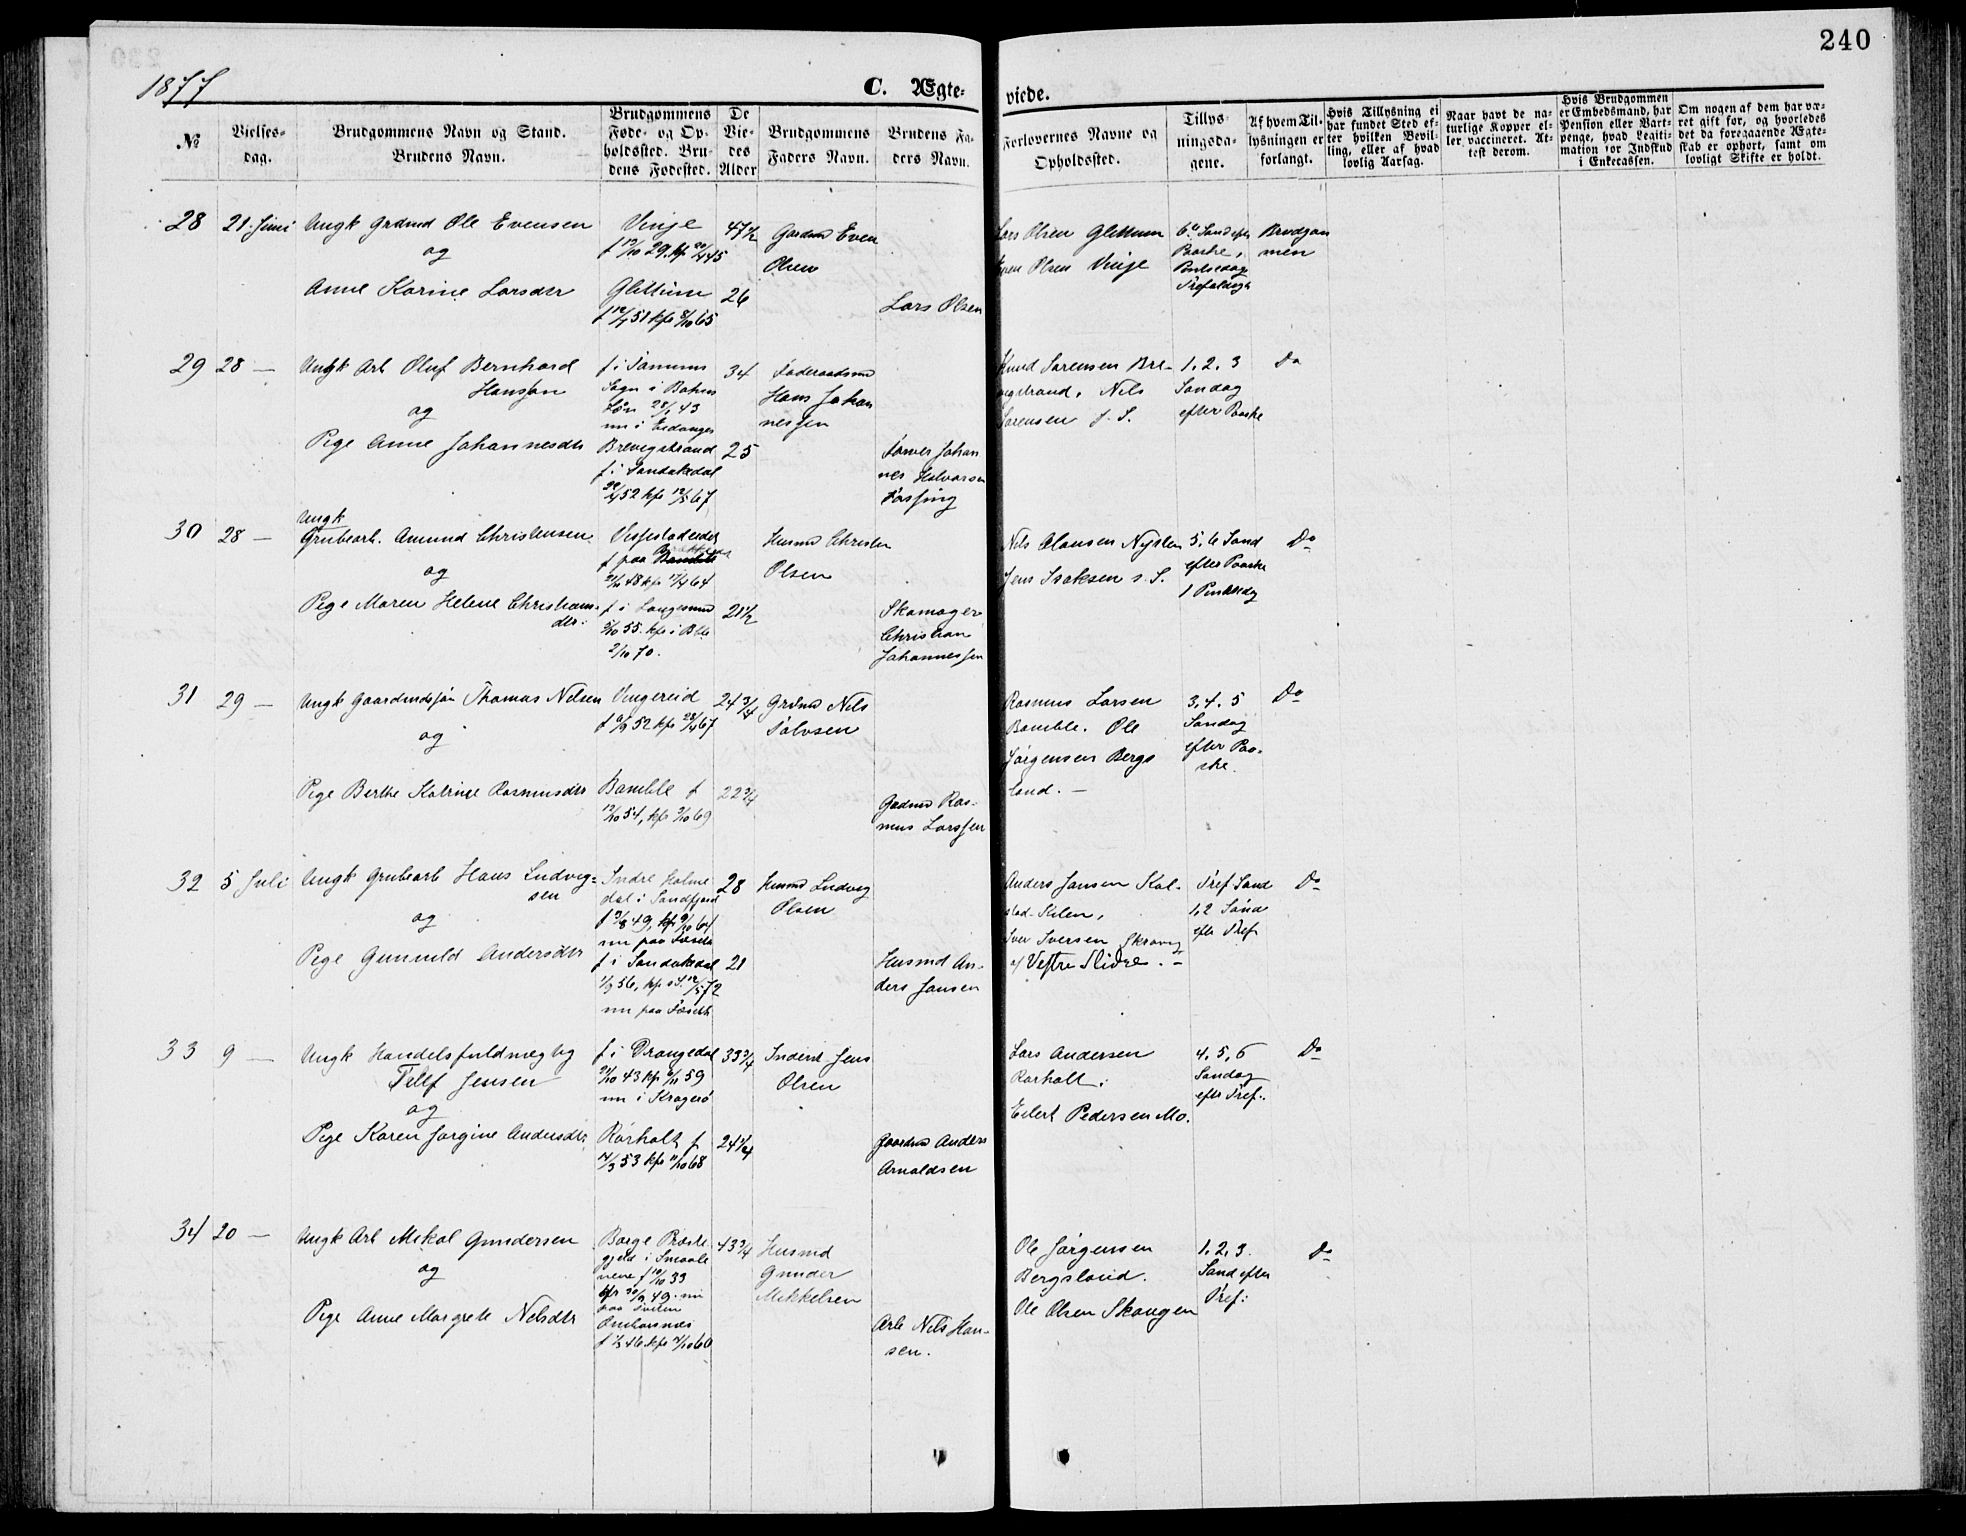 240
1877
C. Ægte- viede.
№
Vielses-
dag.
Brudgommens Navn og Stand.
Brudens Navn.
Brudgommens
Føde- og Op-
holdssted. Bru-
dens Fødested.
De
Vie-
des
Alder
Brudgommens
Faders Navn.
Brudens Fa-
ders Navn.
Forlovernes Navne og
Opholdssted.
Tillys-
ningsda-
gene.
Af hvem Til-
lysningen er
forlangt.
Hvis Tillysning ei
har fundet Sted ef-
ter hvilken Bevil-
ling, eller af hvad
lovlig Aarsag.
Naar havt de na-
turlige Kopper el-
ler vaccineret. At-
test derom.
Hvis Brudgommen
er Embedsmand, har
Pension eller Vart-
penge, hvad Legiti-
mation for Indskud
i Enkecassen.
Om nogen af dem har væ-
ret gift før, og hvorledes
det da foregaaende Ægte-
skab er ophørt, samt om
lovligt Skifte er holdt.
28 21. Juni Ungk Grdmd Ole Evensen
og
Anne Karine Larsdtr
Vinje
f 12/10 29. kf 20/4 45
Glittum
47½
26
Gardmd Even
Olsen
Lars Olsen
Lars Olsen Glittum
Even Olsen Vinje
6te Sand eft
Paaske,
Brudgom
men
29 28 — Ungk Arb Oluf Bernhard
Hansen
og
Pige Anne Johannesdtr
f i Tanums
Sogn i Bahus
Län 28/1 43
nu i Eidanger
Brevigstrand
f i Sandøkedal
34
25
Hans Johan
nessen
Farver Johan
nes Halvorsen
Knud Sørensen Bre-
vigstrand. Nils
Sørensen s. S.
1, 2, 3
Søndag
efter Paaske
Do
30 28 — Ungk
Grubearb. Amund Christensen
og
Pige Maren Helene Christians-
dtr.
f paa
f i Langesund
5/10 55. kf i Bble
2/10 70.
21½
Husmd Christen
Olsen
Skomager
Christian
Johannessen
Nils Olausen Nysten
Jens Isaksen s. S.
5, 6 Sønd
efter Paaske
1 Pinksedg
Do
31 29 — Ungk Gaardmdssøn Thomas Nilsen
og
Pige Berthe Katrine Rasmusdtr
Vingereid
Bamble f
12/10 54, kf 3/10 69
24¾
22¾
Grdmd Nils
Sølvsen
Gadmd Ras-
mus Larssen
Rasmus Larsen
Bamble. Ole
Jørgensen Bergs
land. —
3, 4, 5
Søndag
efter Paa-
ske.
Do
32 5 Juli Ungk Grubearb Hans Ludvig-
sen
og
Pige Gunnild Andersdtr
Indre Holme
dal i Sandfjord
nu paa Fæseth
f i Sandøkedal
nu paa Fæseth
28
21
Husmd Ludvig
Olsen
Husmd An-
ders Jansen
Anders Jansen Kal-
stad-Kilen,
Iver Iversen Skrovig
af Vestre Slidre. —
Tref Sønd
1, 2 Sønd
efter Tref
Do
33 9 — Ungk Handelsfuldmægtig
Tellf Jensen
og
Pige Karen Jorgine Andersdtr
f i Drangedal
nu i Kragerø
Rørholt f
33¾
24¼
Inderst Jens
Olsen
Gaardmd Anders
Arnoldsen
Lars Andersen
Rørholt.
Eilert Pedersen Mo.
4, 5, 6
Søndag
efter Tref:
Do
34 20 — Ungk Arb Mekal Gundersen
og
Pige Anne Margrete Nilsdtr
Borge Præste
gjeld i Smaale
nene f 10/10 33
Omborsnes
43¾
Husmd
Gunder
Mikkelsen
Arb Nils Han-
sen.
Ole Jørgensen
Bergsland.
Ole Olsen Skougen
1, 2, 3.
Sønd efter
Tref:
Do